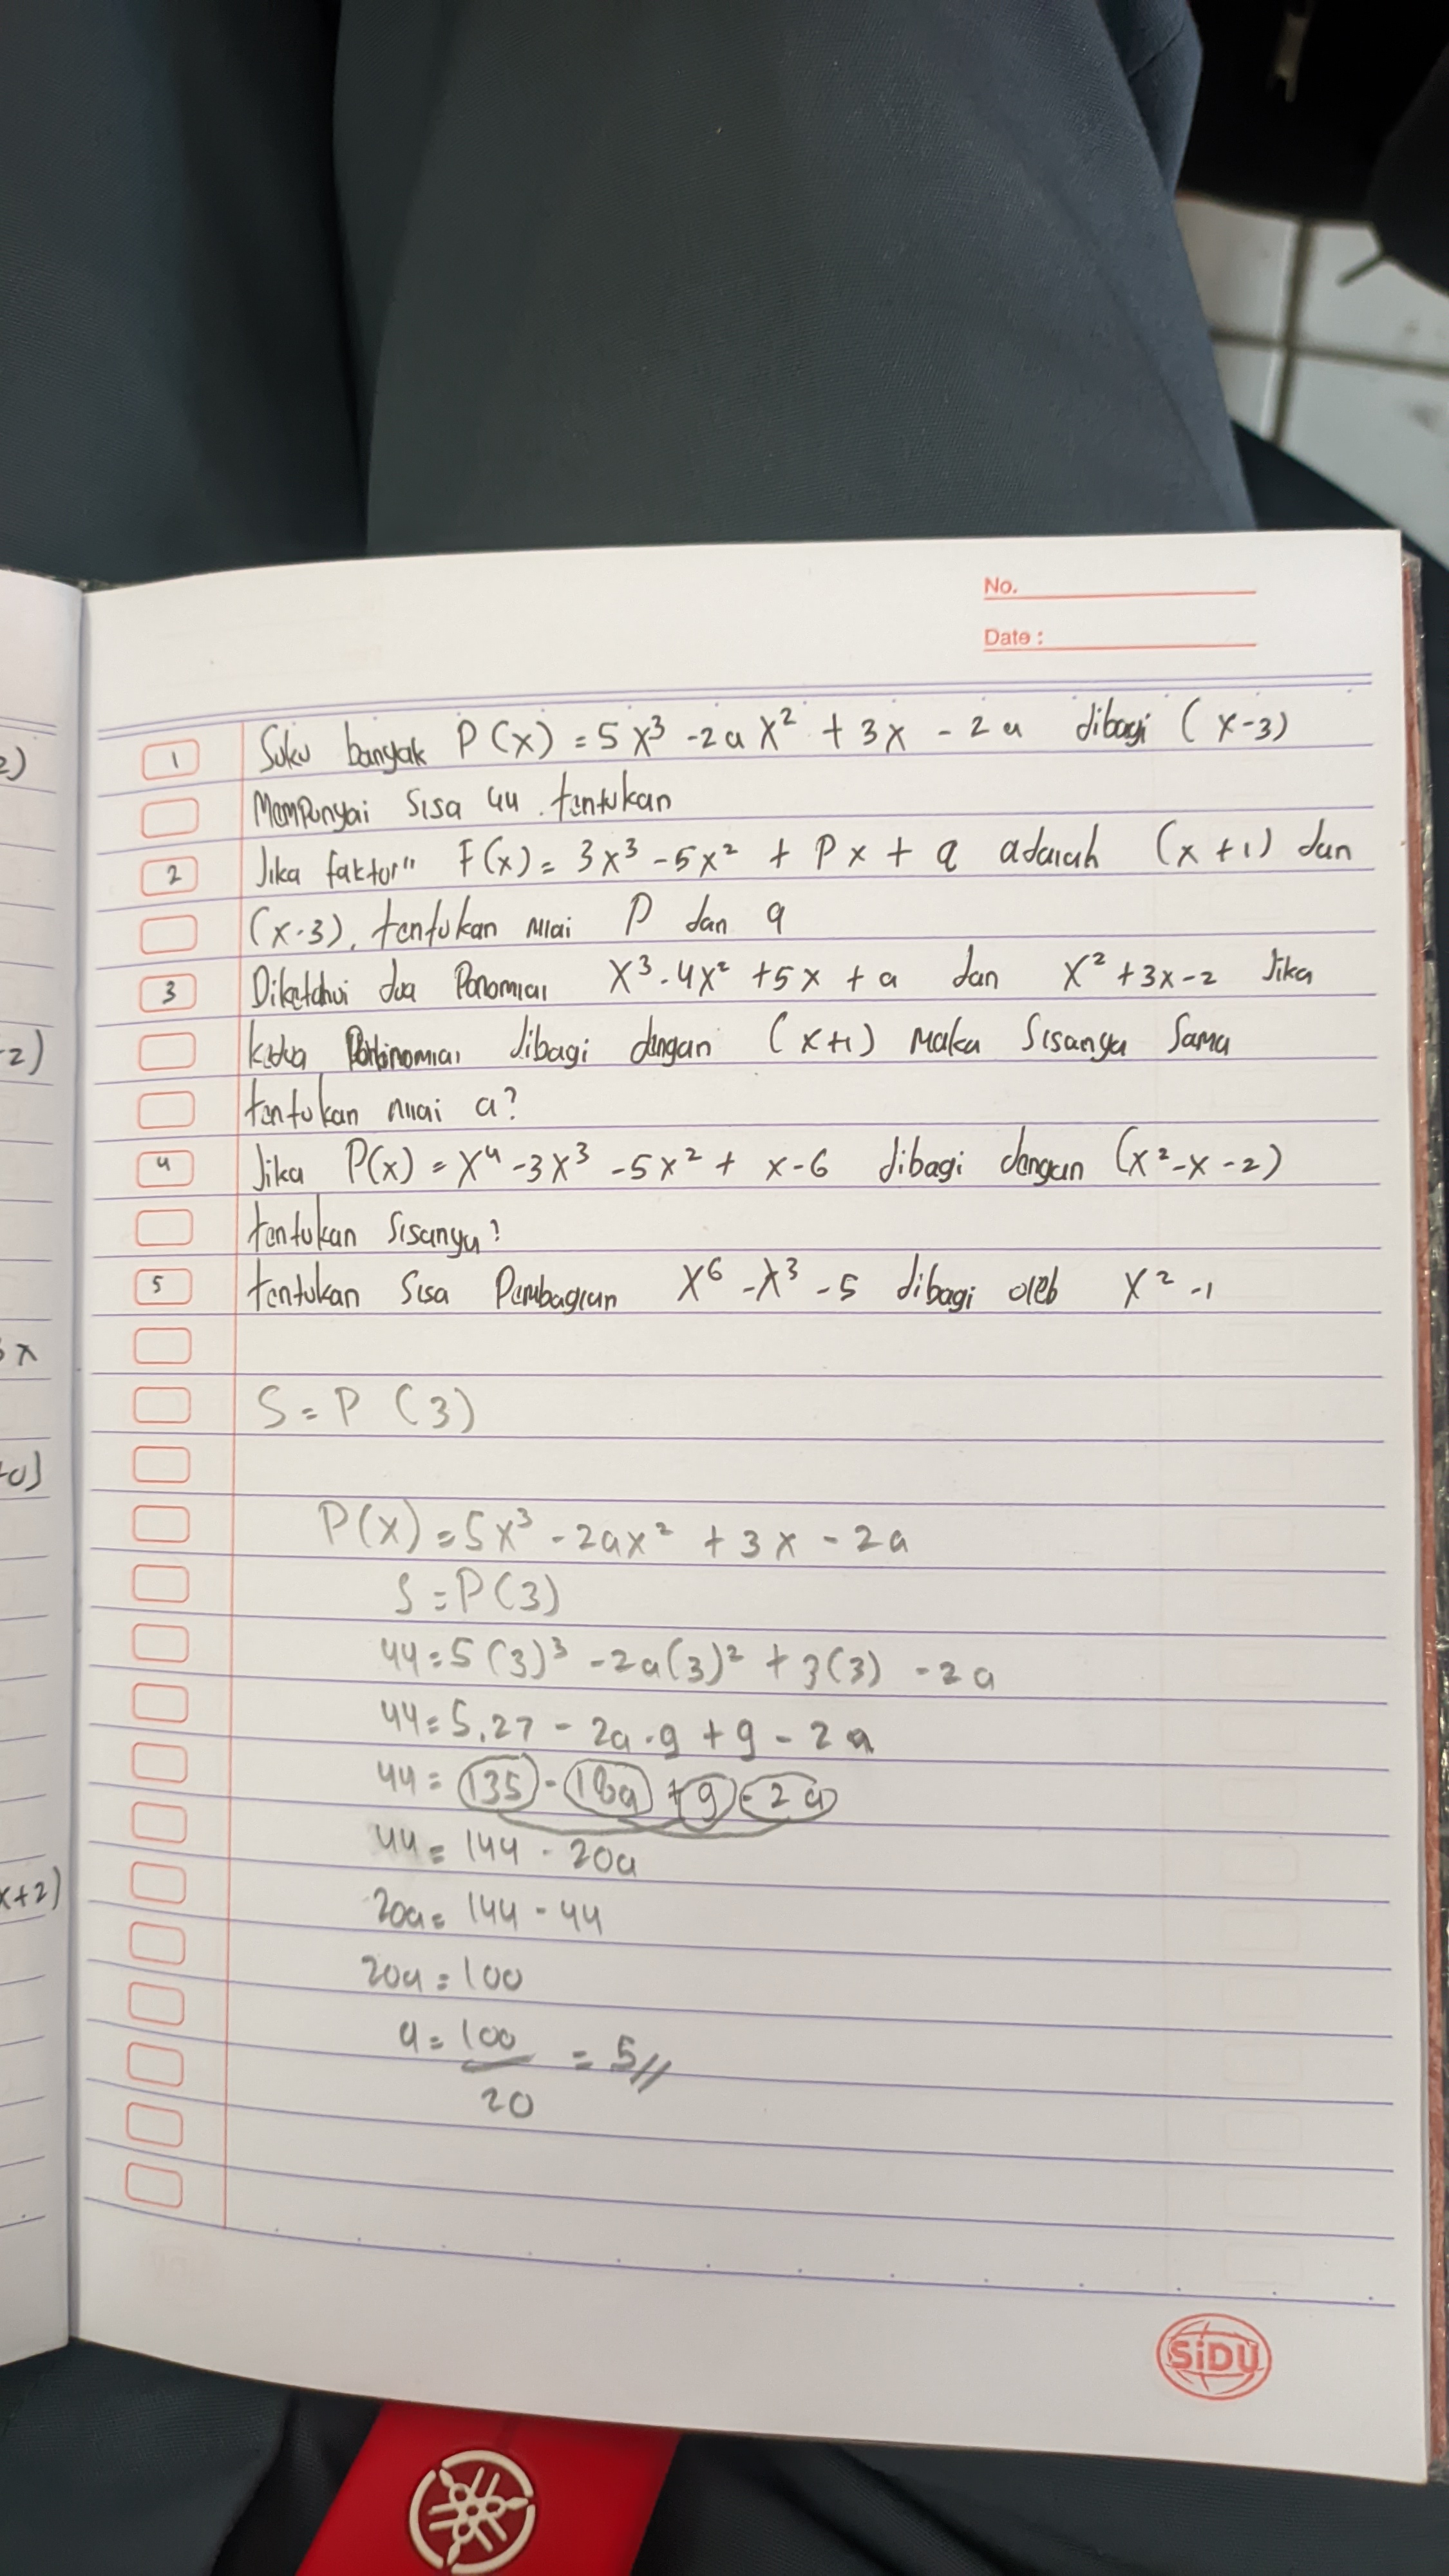 No.
Date :
2)
-2)
3x
+0)
x+2)
1 Suku banyak P(x) = 5x³ - 2ax² + 3x - 2a dibagi (x-3)
Mempunyai sisa 44. tentukan
2 Jika faktor" F(x) = 3x³ - 5x² + Px + q adalah (x+1) dan
(x-3), tentukan nilai P dan q
3 Diketahui dua Ponomial x³ - 4x² + 5x + a dan x² + 3x - 2 Jika
kedua dibagi dengan (x+1) maka sisanya sama
tentukan nilai a?
4 Jika P(x) = x⁴ - 3x³ - 5x² + x - 6 dibagi dengan (x² - x - 2)
tentukan sisanya?
5 tentukan sisa Pembagian x⁶ - x³ - 5 dibagi oleh x² - 1
S = P (3)
P(x) = 5x³ - 2ax² + 3x - 2a
S = P(3)
44 = 5(3)³ - 2a(3)² + 3(3) - 2a
44 = 5.27 - 2a.9 + 9 - 2a
44 = 135 - 18a + 9 - 2a
44 = 144 - 20a
20a = 144 - 44
20a = 100
a = 100/20 = 5//
SiDU